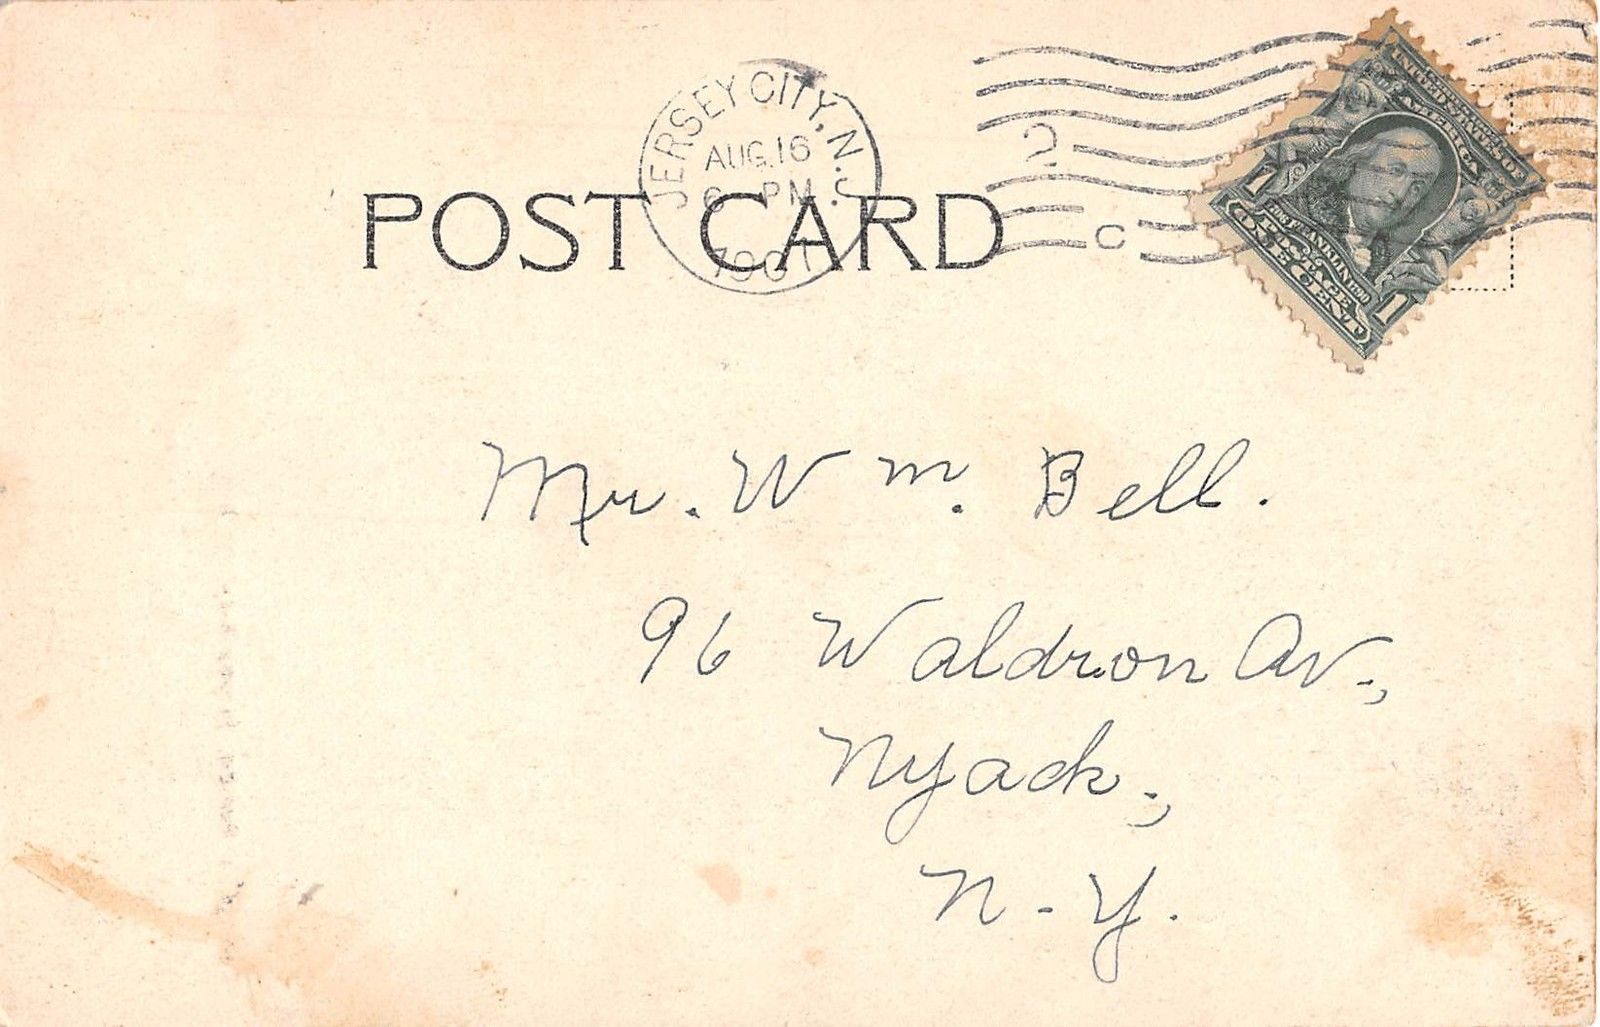 JERSEY CITY, N.J.
AUG. 16
6 PM
1907
2
C
UNITED STATES OF AMERICA
1
1
POSTAGE
ONE CENT
POST CARD
Mr. Wm. Bell.
96 Waldron Av.,
Nyack.,
N.Y.